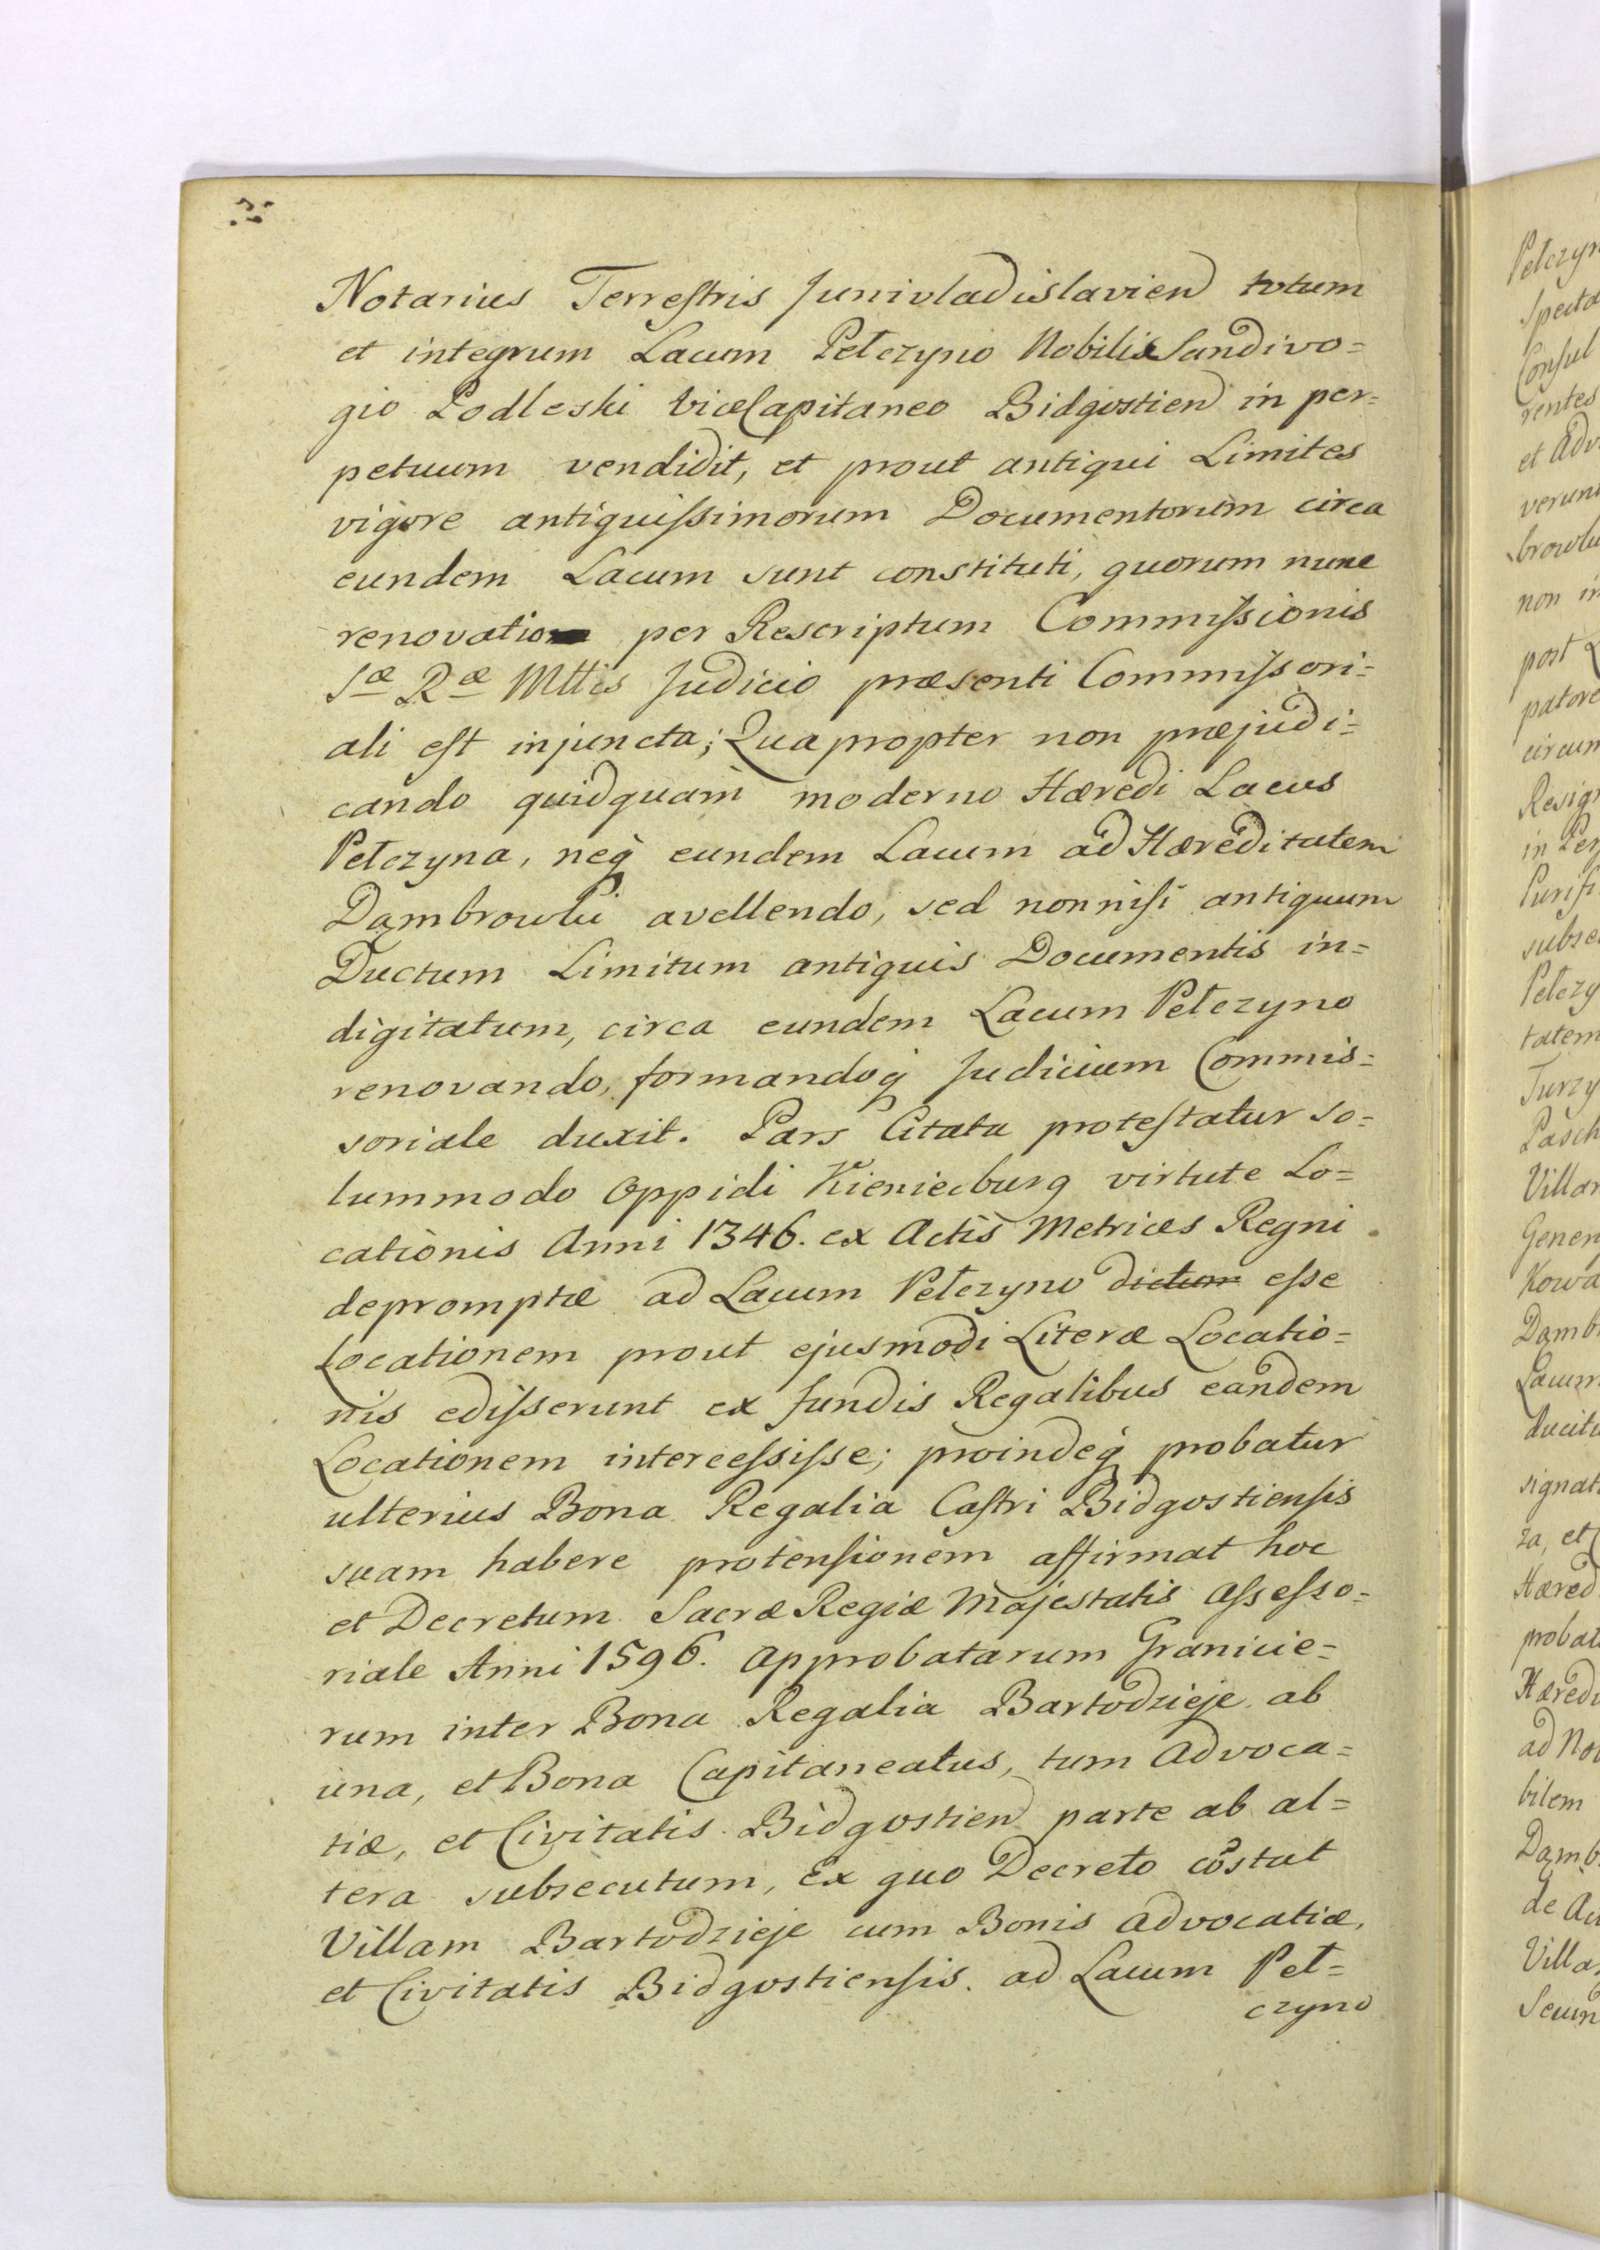 Notarius Terrestris Junivladislavien totum
et integrum Lacum Pełczyno Nobili Sandivo=
gio Podleski ViceCapitaneo Bidgostien in per=
petuum vendidit, et prout antiqui Limites
vigore antiquissimorum Documentorum circa
eundem Lacum sunt constituti, quorum nunc
renovatio per Rescriptum Commissionis
Sæ Ræ Mttis Judicio præsenti Commissori=
ali est injuncta; Quapropter non præjudi=
cando quidquam moderno Hæredi Lacus
Pełczyna, neq eundem Lacum ad Hæreditatem
Dąmbrowki avellendo, sed nonnisi antiquum
Ductum Limitum antiquis Documentis in=
digitatum, circa eundem Lacum Pełczyno
renovando, formandoq Judicium Commis=
soriale duxit. Pars Citata protestatur so=
lummodo Oppidi Kieniecburg virtute Lo=
cationis Anni 1346. ex Actis Metrices Regni
depromptæ ad Lacum Pełczyno dictum esse
Locationem prout ejusmodi Literæ Locatio=
nis edisserunt ex fundis Regalibus eandem
Locationem intercessisse; proindeq probatur
ulterius Bona Regalia Castri Bidgostiensis
suam habere protensionem affirmat hoc
et Decretum Sacræ Regiæ Majestatis Assesso=
riale Anni 1596. Approbatarum Granicie=
rum inter Bona Regalia Bartodzieje ab
una, et Bona Capitaneatus, tum Advoca=
tiæ, et Civitatis Bidgostien parte ab al=
tera subsecutum, Ex quo Decreto cõstat
Villam Bartodzieje cum Bonis Advocatiæ,
et Civitatis Bidgostiensis ad Lacum Peł=
czyno
Spect
Consul
rentes
et Adv
verun
browk
non in
post
patore
circum
Resig
in Per
Purifi
subse
Pełczy
tatem
Turzy
Pasch
Villa
Gener
Kowa
Dąmb
Lacum
ducit
signat
za, et
Hæred
probat
Hæred
ad No
bilem
Dąmb
de Ac
Villa